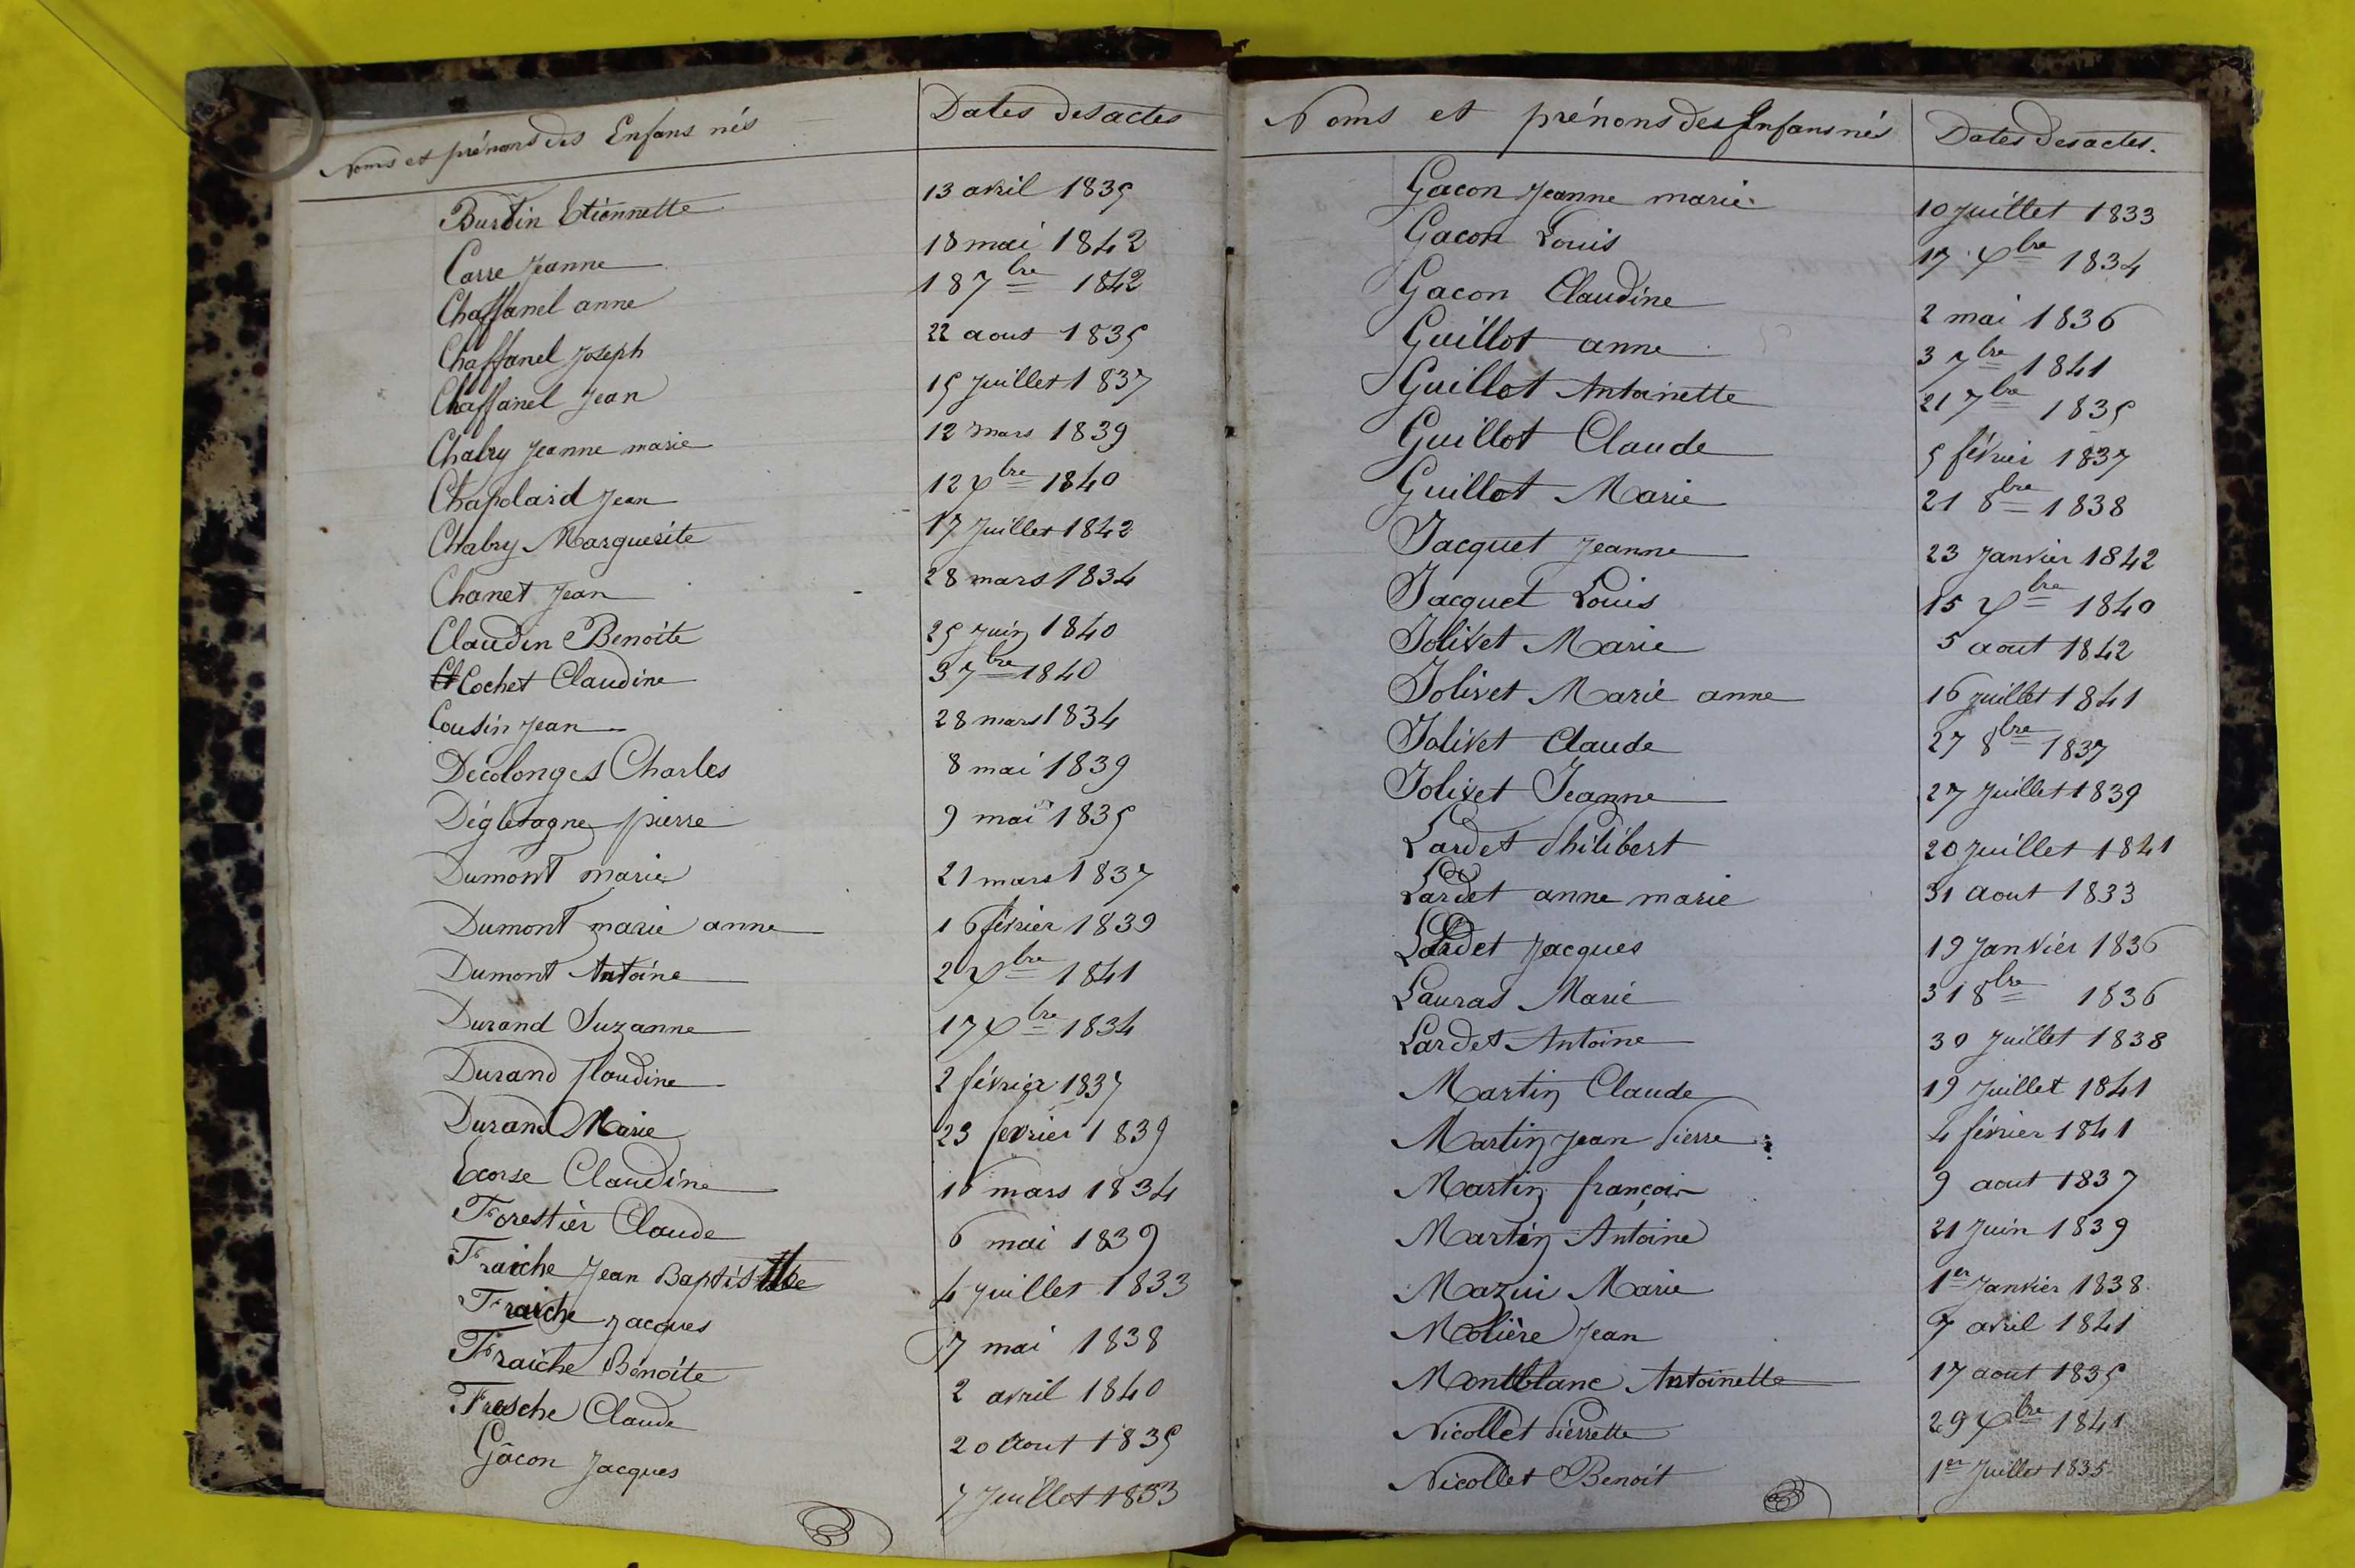 Noms et prénoms des Enfans nés Dates des actes
Burtin Etiennette 13 avril 1835
Carre Jeanne 18 mai 1842
Chaffanel anne 18 7bre 1842
Chaffanel Joseph 22 aout 1835
Chaffanel Jean 15 Juillet 1837
Chabry Jeanne marie 12 mars 1839
Chapolard Jean 12 Xbre 1840
Chabry Marguerite 17 Juillet 1842
Chanet Jean 28 mars 1834
Claudin Benoite 25 Juin 1840
Cochet Claudine 3 7bre 1840
Cousin Jean 28 mars 1834
Decolonges Charles 8 mai 1839
Dégletagne pierre 9 mai 1835
Dumont marie 21 mars 1837
Dumont marie anne 16 février 1839
Dumont Antoine 2 Xbre 1841
Durand Suzanne 17 Xbre 1834
Durand Claudine 2 février 1837
Durand Marie 23 fevrier 1839
Ecorse Claudine 16 mars 1834
Forestier Claude 6 mai 1839
Fraiche Jean Baptiste 4 Juillet 1833
Fraiche Jacques 17 mai 1838
Fraiche Bénoite 2 avril 1840
Fresche Claude 20 Aout 1835
Gâcon Jacques 7 Juillet 1833
Noms et prénons des Enfans nés Dates des actes.
Gacon Jeanne marie 10 Juillet 1833
Gacon Louis 17 Xbre 1834
Gacon Claudine 2 mai 1836
Guillot anne 3 7bre 1841
Guillot Antoinette 21 7bre 1835
Guillot Claude 5 février 1837
Guillot Marie 21 8bre 1838
Jacquet Jeanne 23 Janvier 1842
Jacquet Louis 15 Xbre 1840
Jolivet Marie 5 aout 1842
Jolivet Marie anne 16 juillet 1841
Jolivet Claude 27 8bre 1837
Jolivet Jeanne 27 Juillet 1839
Lardet Philibert 20 Juillet 1841
Lardet anne marie 31 aout 1833
Lardet Jacques 19 Janvier 1836
Lauras Marie 31 8bre 1836
Lardet Antoine 30 Juillet 1838
Martin Claude 19 Juillet 1841
Martin Jean Pierre 4 février 1841
Martin françois 9 aout 1837
Martin Antoine 21 Juin 1839
Mazui Marie 1er Janvier 1838
Molière Jean 7 avril 1841
Montblanc Antoinette 17 aout 1835
Nicollet Pierrette 29 Xbre 1841
Nicollet Benoit 1er Juillet 1835